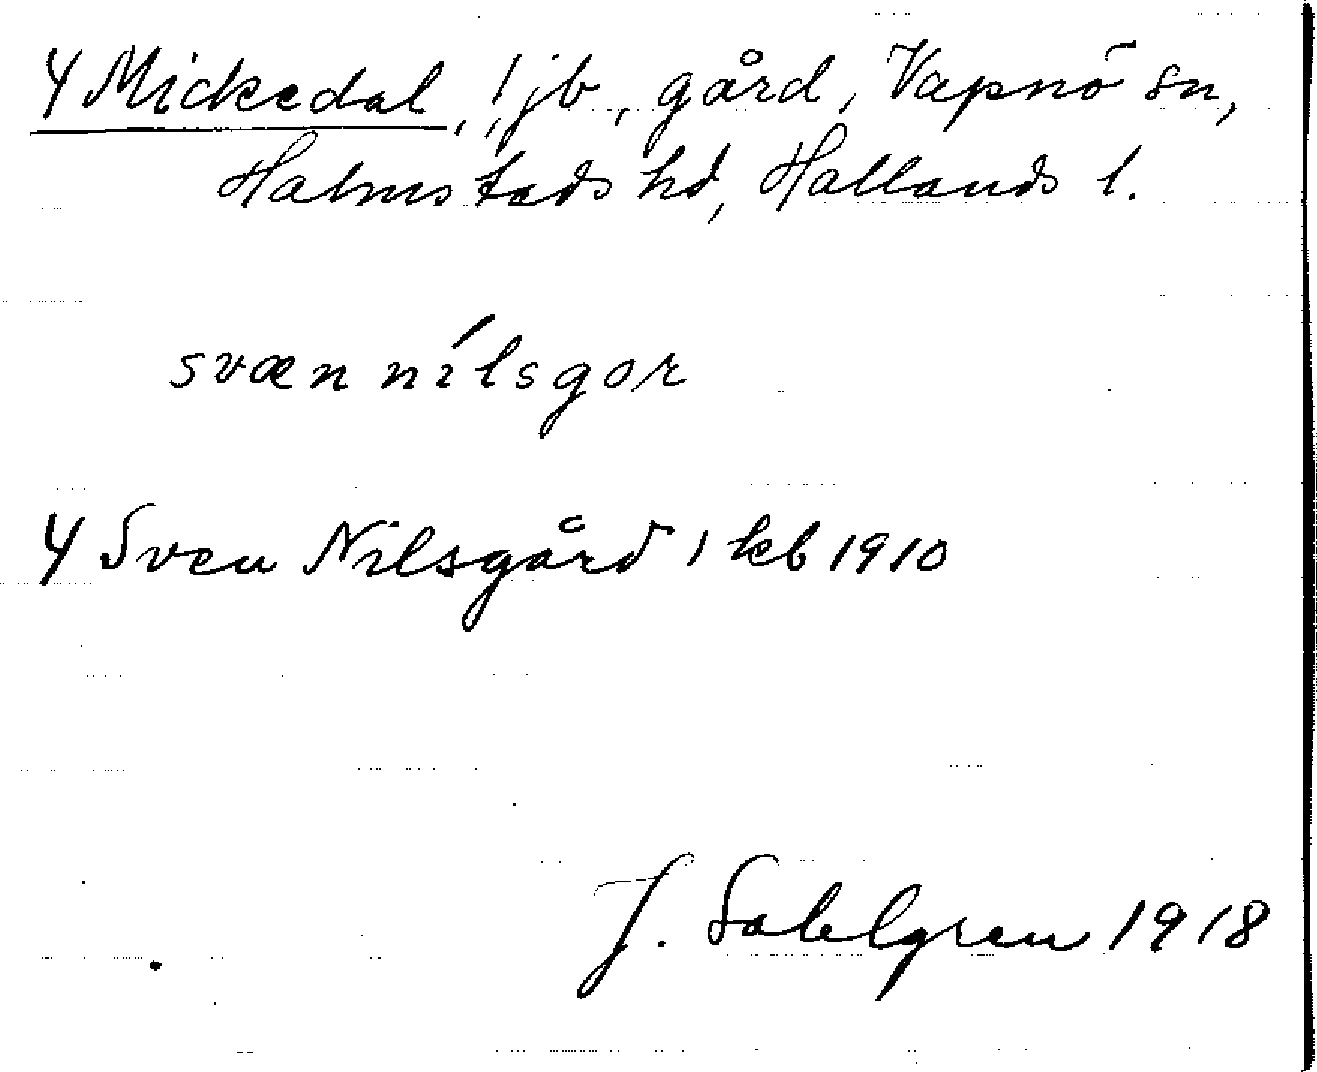 4 Mickedal, ! jb, gård, Vapnö sn,
Halmstads hd, Hallands l.
svæn nílsgor
4 Sven Nilsgård 1 kb 1910
J. Sahlgren 1918